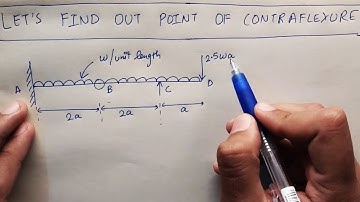 LET'S FIND OUT POINT OF CONTRAFLEXURE
w/unit length
2.5wa
A
B
C
D
2a
2a
a